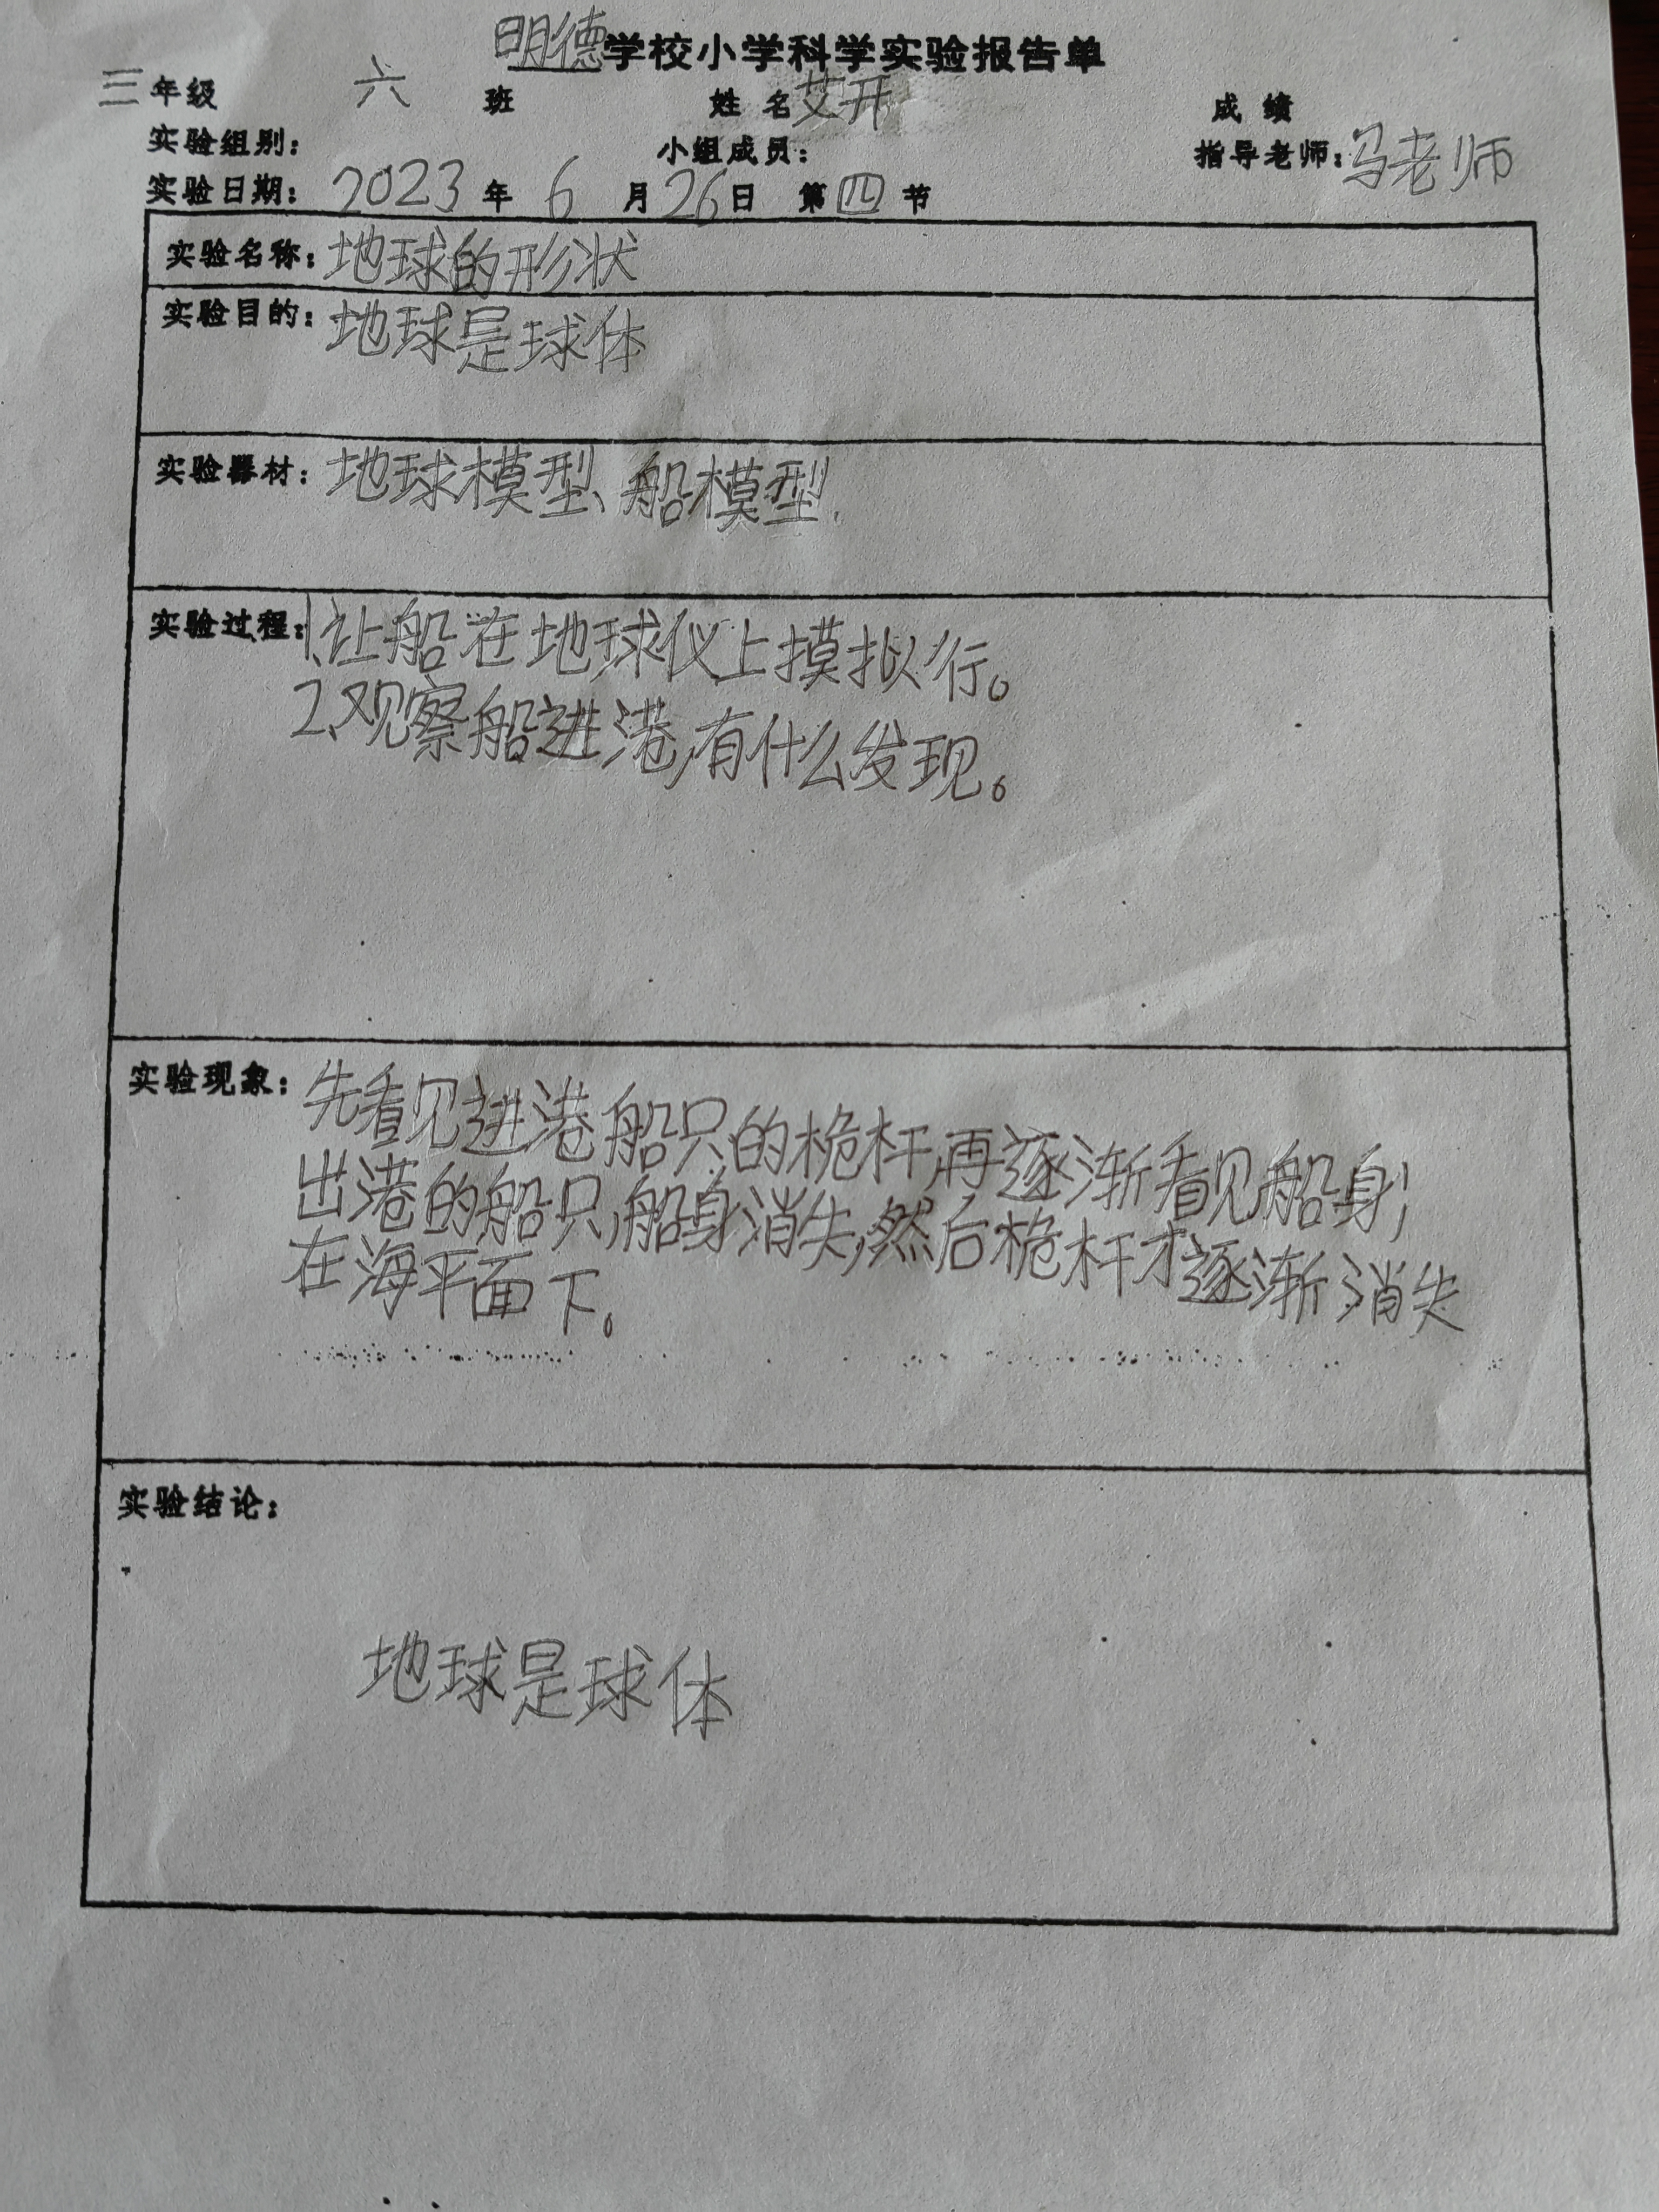 明德学校小学科学实验报告单
三年级 六 班 姓 名 艾开 成 绩
实验组别： 小组成员： 指导老师：马老师
实验日期： 2023 年 6 月 26 日 第 四 节
实验名称：地球的形状
实验目的：地球是球体
实验器材：地球模型、船模型.
实验过程：1、让船在地球仪上摸拟行。
2、观察船进港,有什么发现。
实验现象：先看见进港船只的桅杆,再逐渐看见船身;
出港的船只,船身消失,然后桅杆才逐渐消失
在海平面下。
实验结论：
地球是球体